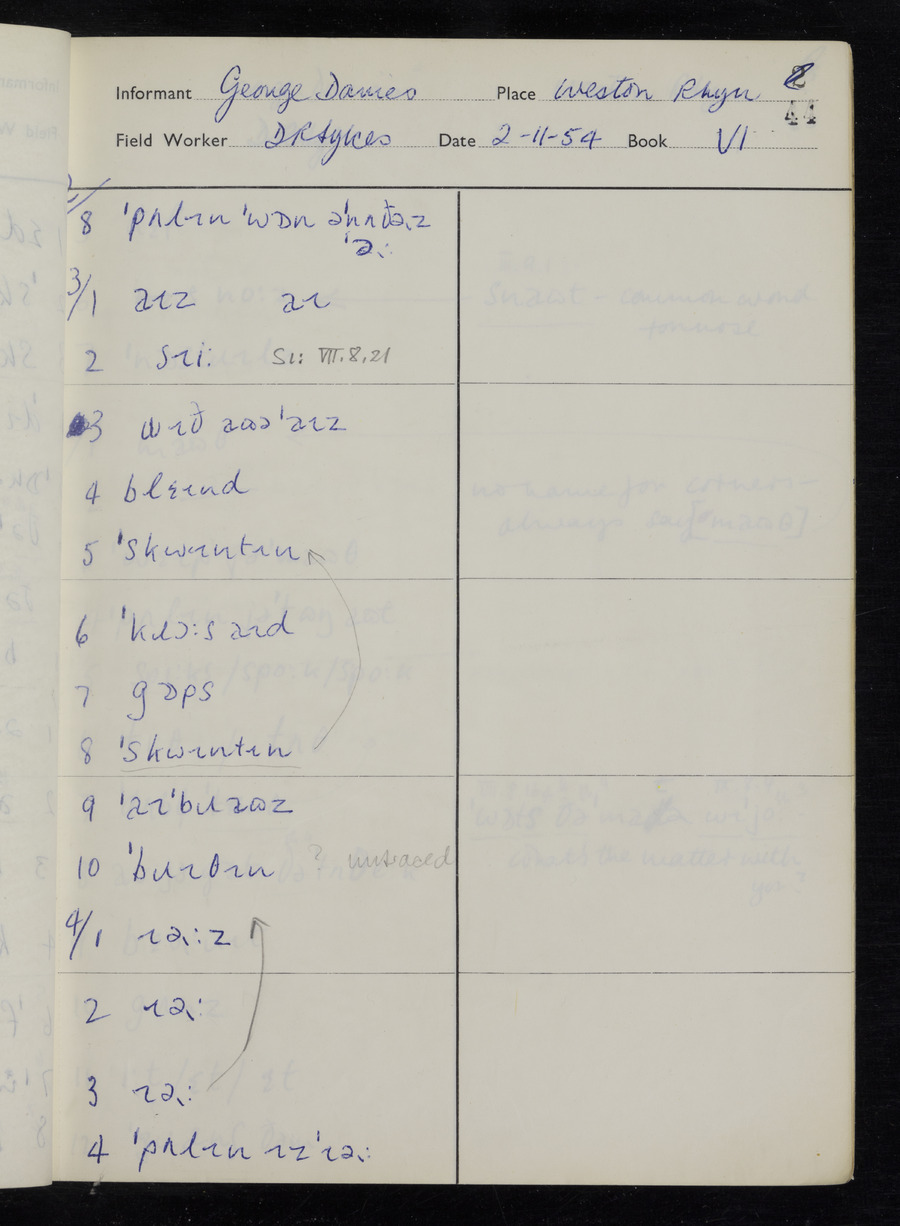 Informant George Davies Place Weston Rhyn 2
44
Field Worker DRSykes Date 2-11-54 Book VI
2/
8 ˈpʌlɪn ˈwɒn əˈnʌðə˞z
ˈə˞:
3/1 aɪz aɪ
2 sɪi: si: VIII.8.21
3 wɪð aʊəˈaɪz
4 blɛɪnd
5 ˈskwɪntɪn
6 ˈkɹɔ:s aɪd
7 gɒps
8 ˈskwɪntɪn
9 ˈaɪˈbɹaʊz
10 ˈbɹɪðɪn ? untraced
4/1 ɪə˞:z
2 ɪə˞:
3 ɪə˞:
4 ˈpʌlɪn ɪzˈɪə˞: